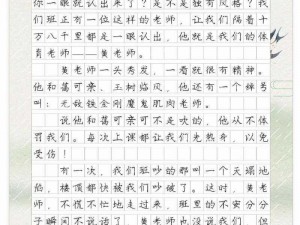 你一眼就认出来了?是不是独有风格?我
们班正有一位这样的老师,让我们隔着十
万八千里都是一眼认出,他就是我们的体
育老师——黄老师。
黄老师一头秀发,一看就很有精神。
他和蔼可亲、玉树临风,他还有一个绰号
叫:无敌铁金刚魔鬼肌肉老师。
说他和蔼可亲可不是吹的,他从不体
罚我们。每次上课都让我们先热身,以免
受伤!
有一次,我们班吵的那叫一个天塌地
陷,楼顶都快被我们吵破了。这时,黄老
师,不慌不忙地走来,班里的不安分分
子瞬间不说话了,黄老师也没说我们,但